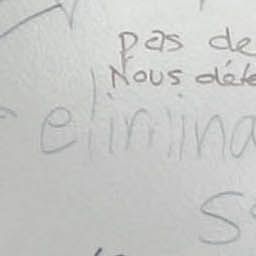 pas de
Nous déte
elimina
s